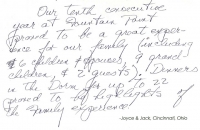 Our tenth consecutive
year at Fountain Point
proved to be a great exper-
ience for our family (including
6 children & spouses, 9 grand-
children, & 2 guests). Dinners
in the Dorm for up to 22
proved to be highlights of
the family experience!
-Joyce & Jack, Cincinnati, Ohio